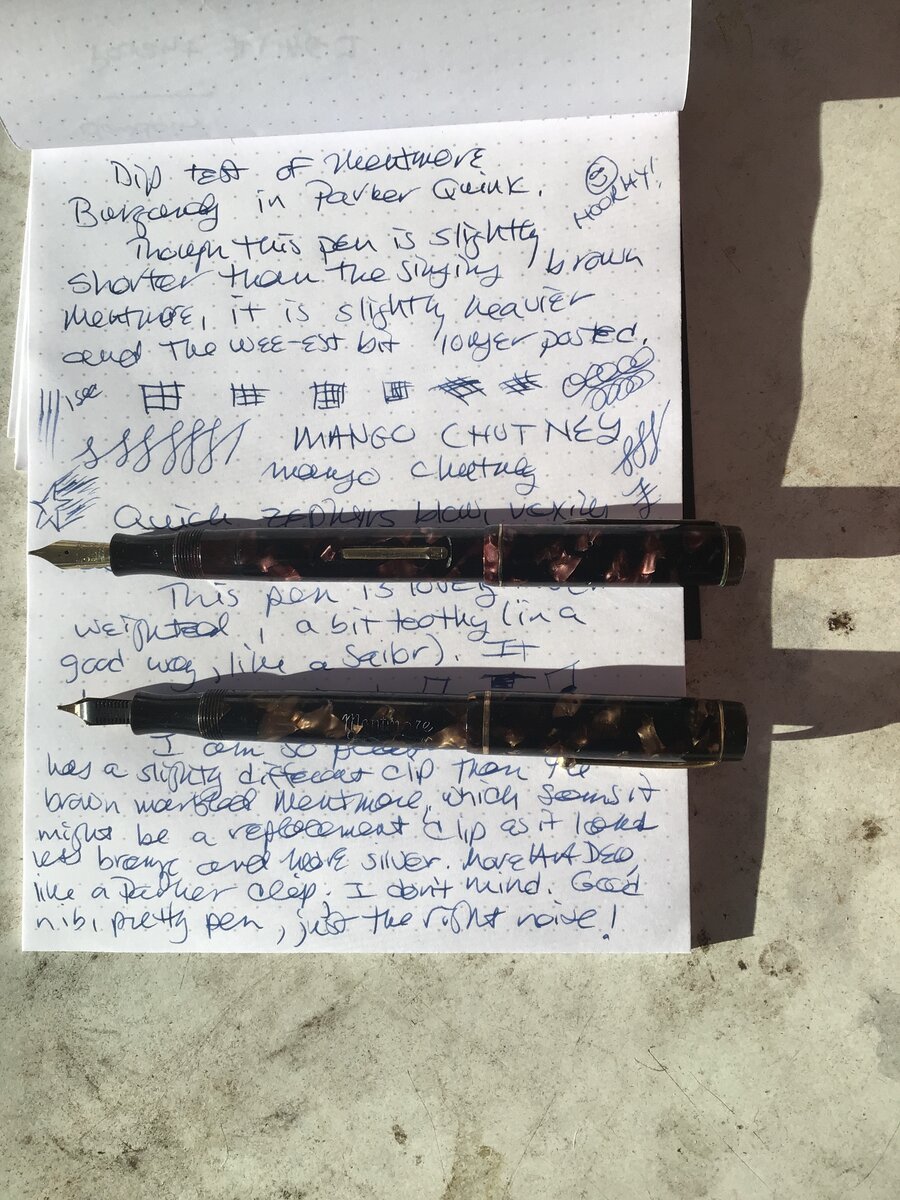 Dip test of Mentmore
Burgandy in Parker Quink.
HOORAY!
Though this pen is slightly
shorter than the singing brown
Mentmore, it is slightly heavier
and the wee-est bit longer posted.
1 sec
MANGO CHUTNEY
mango chutney
Quick zephyrs blow, vexing
This pen is lovely
weighted, a bit toothy (in a
good way, like a Sailor). It
Mentmore
I am so
has a slightly different clip than the
brown marbled Mentmore, which seems it
might be a replacement clip as it looks
less bronze and more silver. More Art Deco,
like a Parker clip. I don't mind. Good
nib, pretty pen, just the right noise!